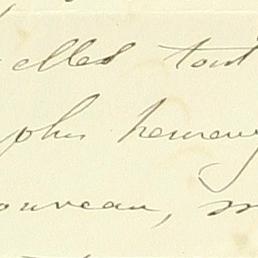 elles tout
plus heureux
nouveau, m